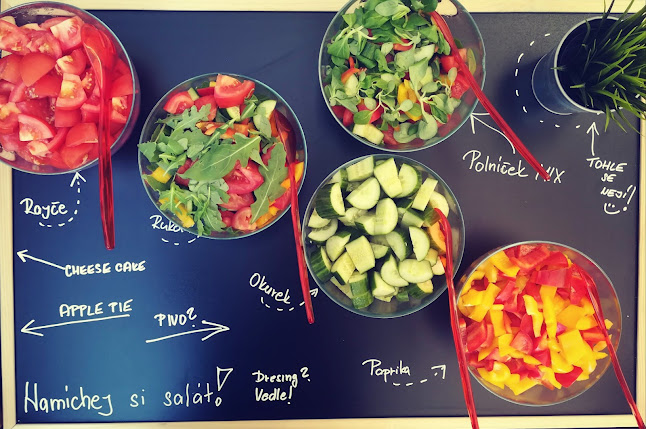 Polníček MIX
TOHLE
SE
NEJÍ!
Rajče
CHEESE CAKE
Okurek
APPLE TIE
PIVO?
Paprika
Namíchej si salát!
Dresing?
Vedle!